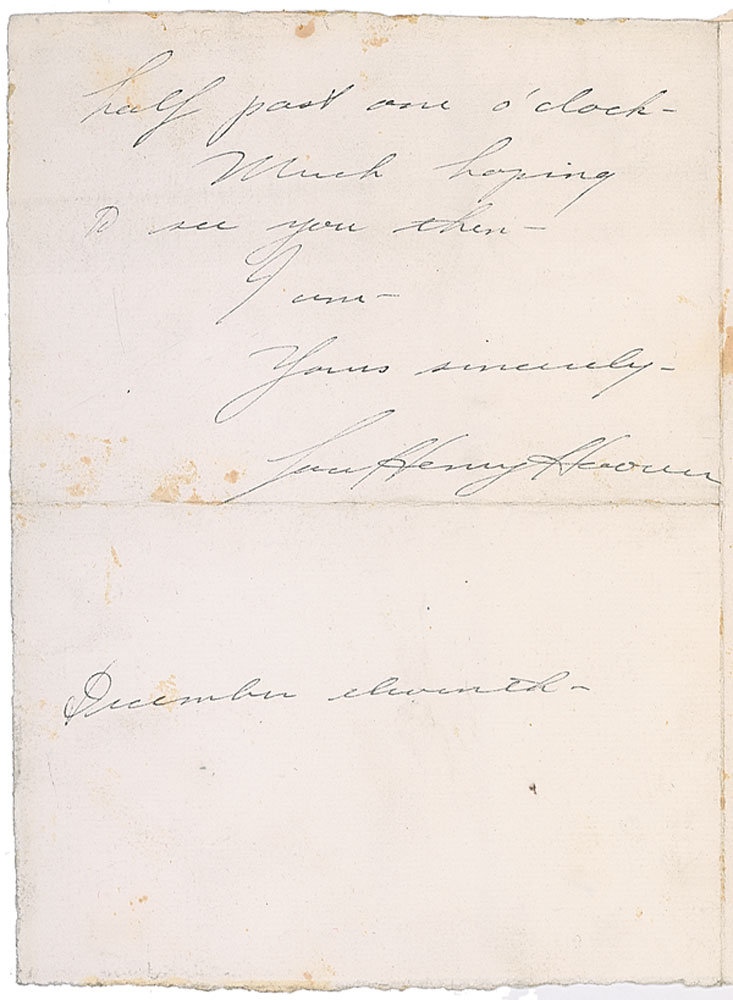 half past one o'clock-
Much hoping
to see you then-
I am-
Yours sincerely-
Lou Henry Hoover
December eleventh-